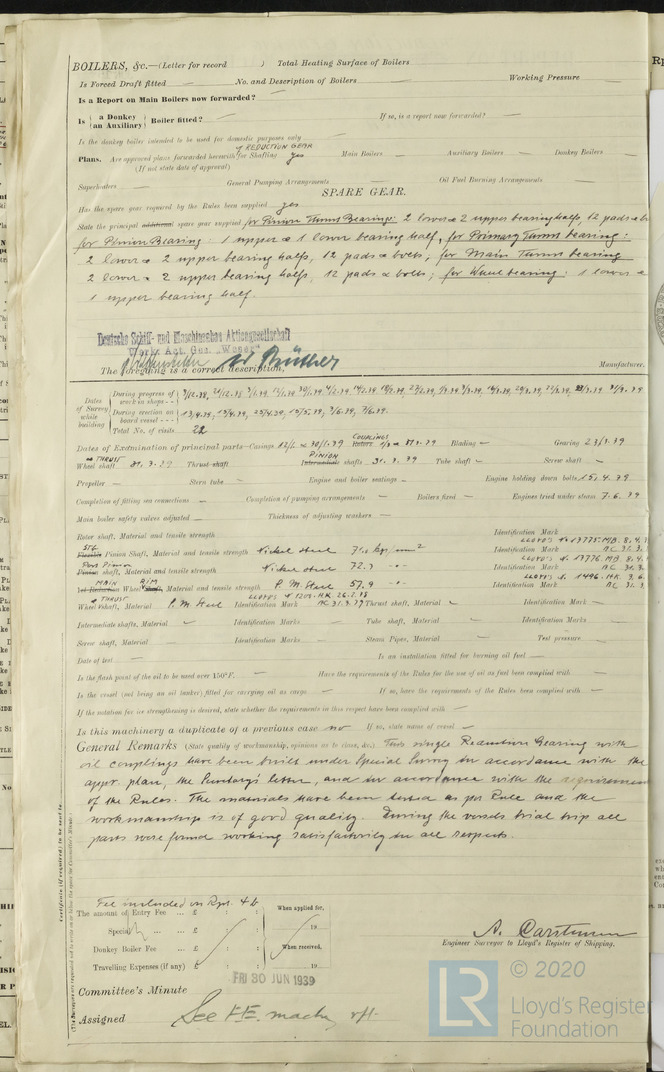 BOILERS, &c.—(Letter for record ) Total Heating Surface of Boilers
Is Forced Draft fitted — No. and Description of Boilers — Working Pressure —
Is a Report on Main Boilers now forwarded? —
Is { a Donkey / an Auxiliary } Boiler fitted? — If so, is a report now forwarded? —
Is the donkey boiler intended to be used for domestic purposes only —
of REDUCTION GEAR
Plans. Are approved plans forwarded herewith for Shafting yes Main Boilers — Auxiliary Boilers — Donkey Boilers —
(If not state date of approval)
Superheaters — General Pumping Arrangements — Oil Fuel Burning Arrangements —
SPARE GEAR.
Has the spare gear required by the Rules been supplied yes
State the principal additional spare gear supplied for Pinion Thrust Bearings: 2 lower & 2 upper bearing halfs, 12 pads & b
for Pinion Bearing: 1 upper & 1 lower bearing half, for Primary Thrust bearing:
2 lower & 2 upper bearing halfs, 12 pads & bolts; for Main Thrust bearing
2 lower & 2 upper bearing halfs, 12 pads & bolts; for Wheel bearing: 1 lower &
1 upper bearing half.
Deutsche Schiff- und Maschinenbau Aktiengesellschaft
Werk Act. Ges. „Weser"
The foregoing is a correct description, Manufacturer.
Dates of Survey while building
During progress of work in shops - -
During erection on board vessel - - - 13/4.39, 15/4.39, 25/4.39, 15/5.39, 3/6.39, 7/6.39.
Total No. of visits 22
COUPLINGS
Dates of Examination of principal parts—Casings 12/1 & 30/1.39 Rotors Blading — Gearing 23/3.39
& THRUST PINION
Wheel shaft 31.3.39 Thrust shaft Intermediate shafts 31.3.39 Tube shaft — Screw shaft —
Propeller — Stern tube — Engine and boiler seatings — Engine holding down bolts 15.4.39
Completion of fitting sea connections — Completion of pumping arrangements — Boilers fixed — Engines tried under steam 7.6.39
Main boiler safety valves adjusted — Thickness of adjusting washers —
Rotor shaft, Material and tensile strength Identification Mark
STB LLOYD'S No 13775.MB. 8.4.3
Flexible Pinion Shaft, Material and tensile strength Nickel steel kgs/mm² Identification Mark AC 31.3.
Port Pinion LLOYD'S No. 13776 MB. 8.4.
Pinion shaft, Material and tensile strength Nickel steel 72.3 -"- Identification Mark AC 31.3.
MAIN RIM LLOYD'S No. 1496.HK. 3.6.
1st Reduction Wheel Shaft, Material and tensile strength P.M. Steel 57.9 -"- Identification Mark AC 31.3.
& THRUST LLOYD'S No 1209.HK 26.2.38
Wheel shaft, Material P.M. Steel Identification Mark AC 31.3.39 Thrust shaft, Material — Identification Mark —
Intermediate shafts, Material — Identification Marks — Tube shaft, Material — Identification Marks —
Screw shaft, Material — Identification Marks — Steam Pipes, Material — Test pressure —
Date of test — Is an installation fitted for burning oil fuel —
Is the flash point of the oil to be used over 150°F. — Have the requirements of the Rules for the use of oil as fuel been complied with —
Is the vessel (not being an oil tanker) fitted for carrying oil as cargo — If so, have the requirements of the Rules been complied with —
If the notation for ice strengthening is desired, state whether the requirements in this respect have been complied with —
Is this machinery a duplicate of a previous case no If so, state name of vessel —
General Remarks (State quality of workmanship, opinions as to class, &c.) This single Reduction Gearing with
oil couplings have been built under Special Survey in accordance with the
appr. plan, the Secretary's letter, and in accordance with the requirements
of the Rules. The materials have been tested as per Rule and the
workmanship is of good quality. During the vessels trial trip all
parts were found working satisfactorily in all respects.
Certificate (if required) to be sent to
Fee included on Rpt. 4b
The amount of Entry Fee ... £ : : When applied for,
Special ... ... £ : : 19
Donkey Boiler Fee ... £ : : When received,
Travelling Expenses (if any) £ : : 19
A. Carstensen
Engineer Surveyor to Lloyd's Register of Shipping.
FRI 30 JUN 1939
Committee's Minute
Assigned See F.E. machy rpt.
LR © 2020
Lloyd's Register
Foundation